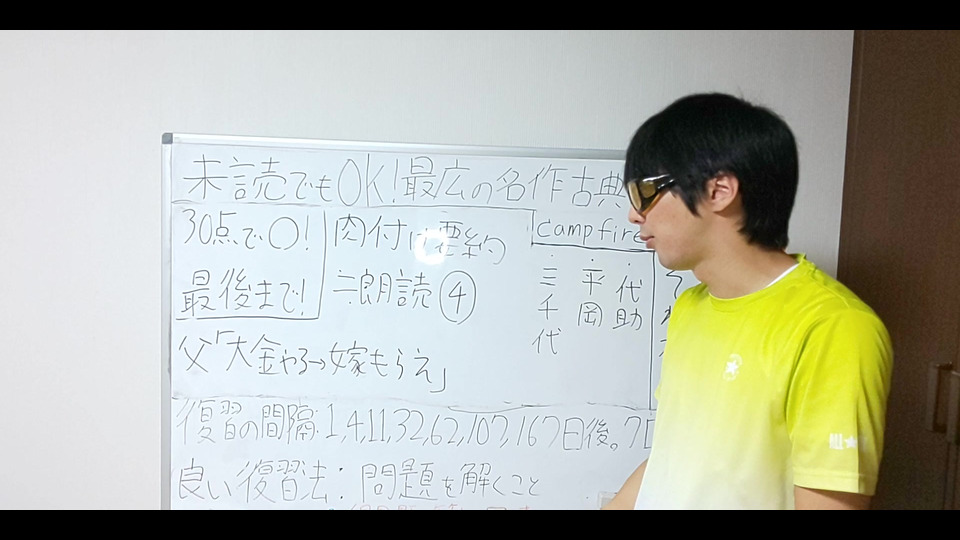 未読でもOK!最広の名作古典
30点で○!
最後まで!
肉付け要約
=朗読④
campfire
代助
平岡
三千代
父「大金やる→嫁もらえ」
復習の間隔:1,4,11,32,62,107,167日後。7日
良い復習法:問題を解くこと